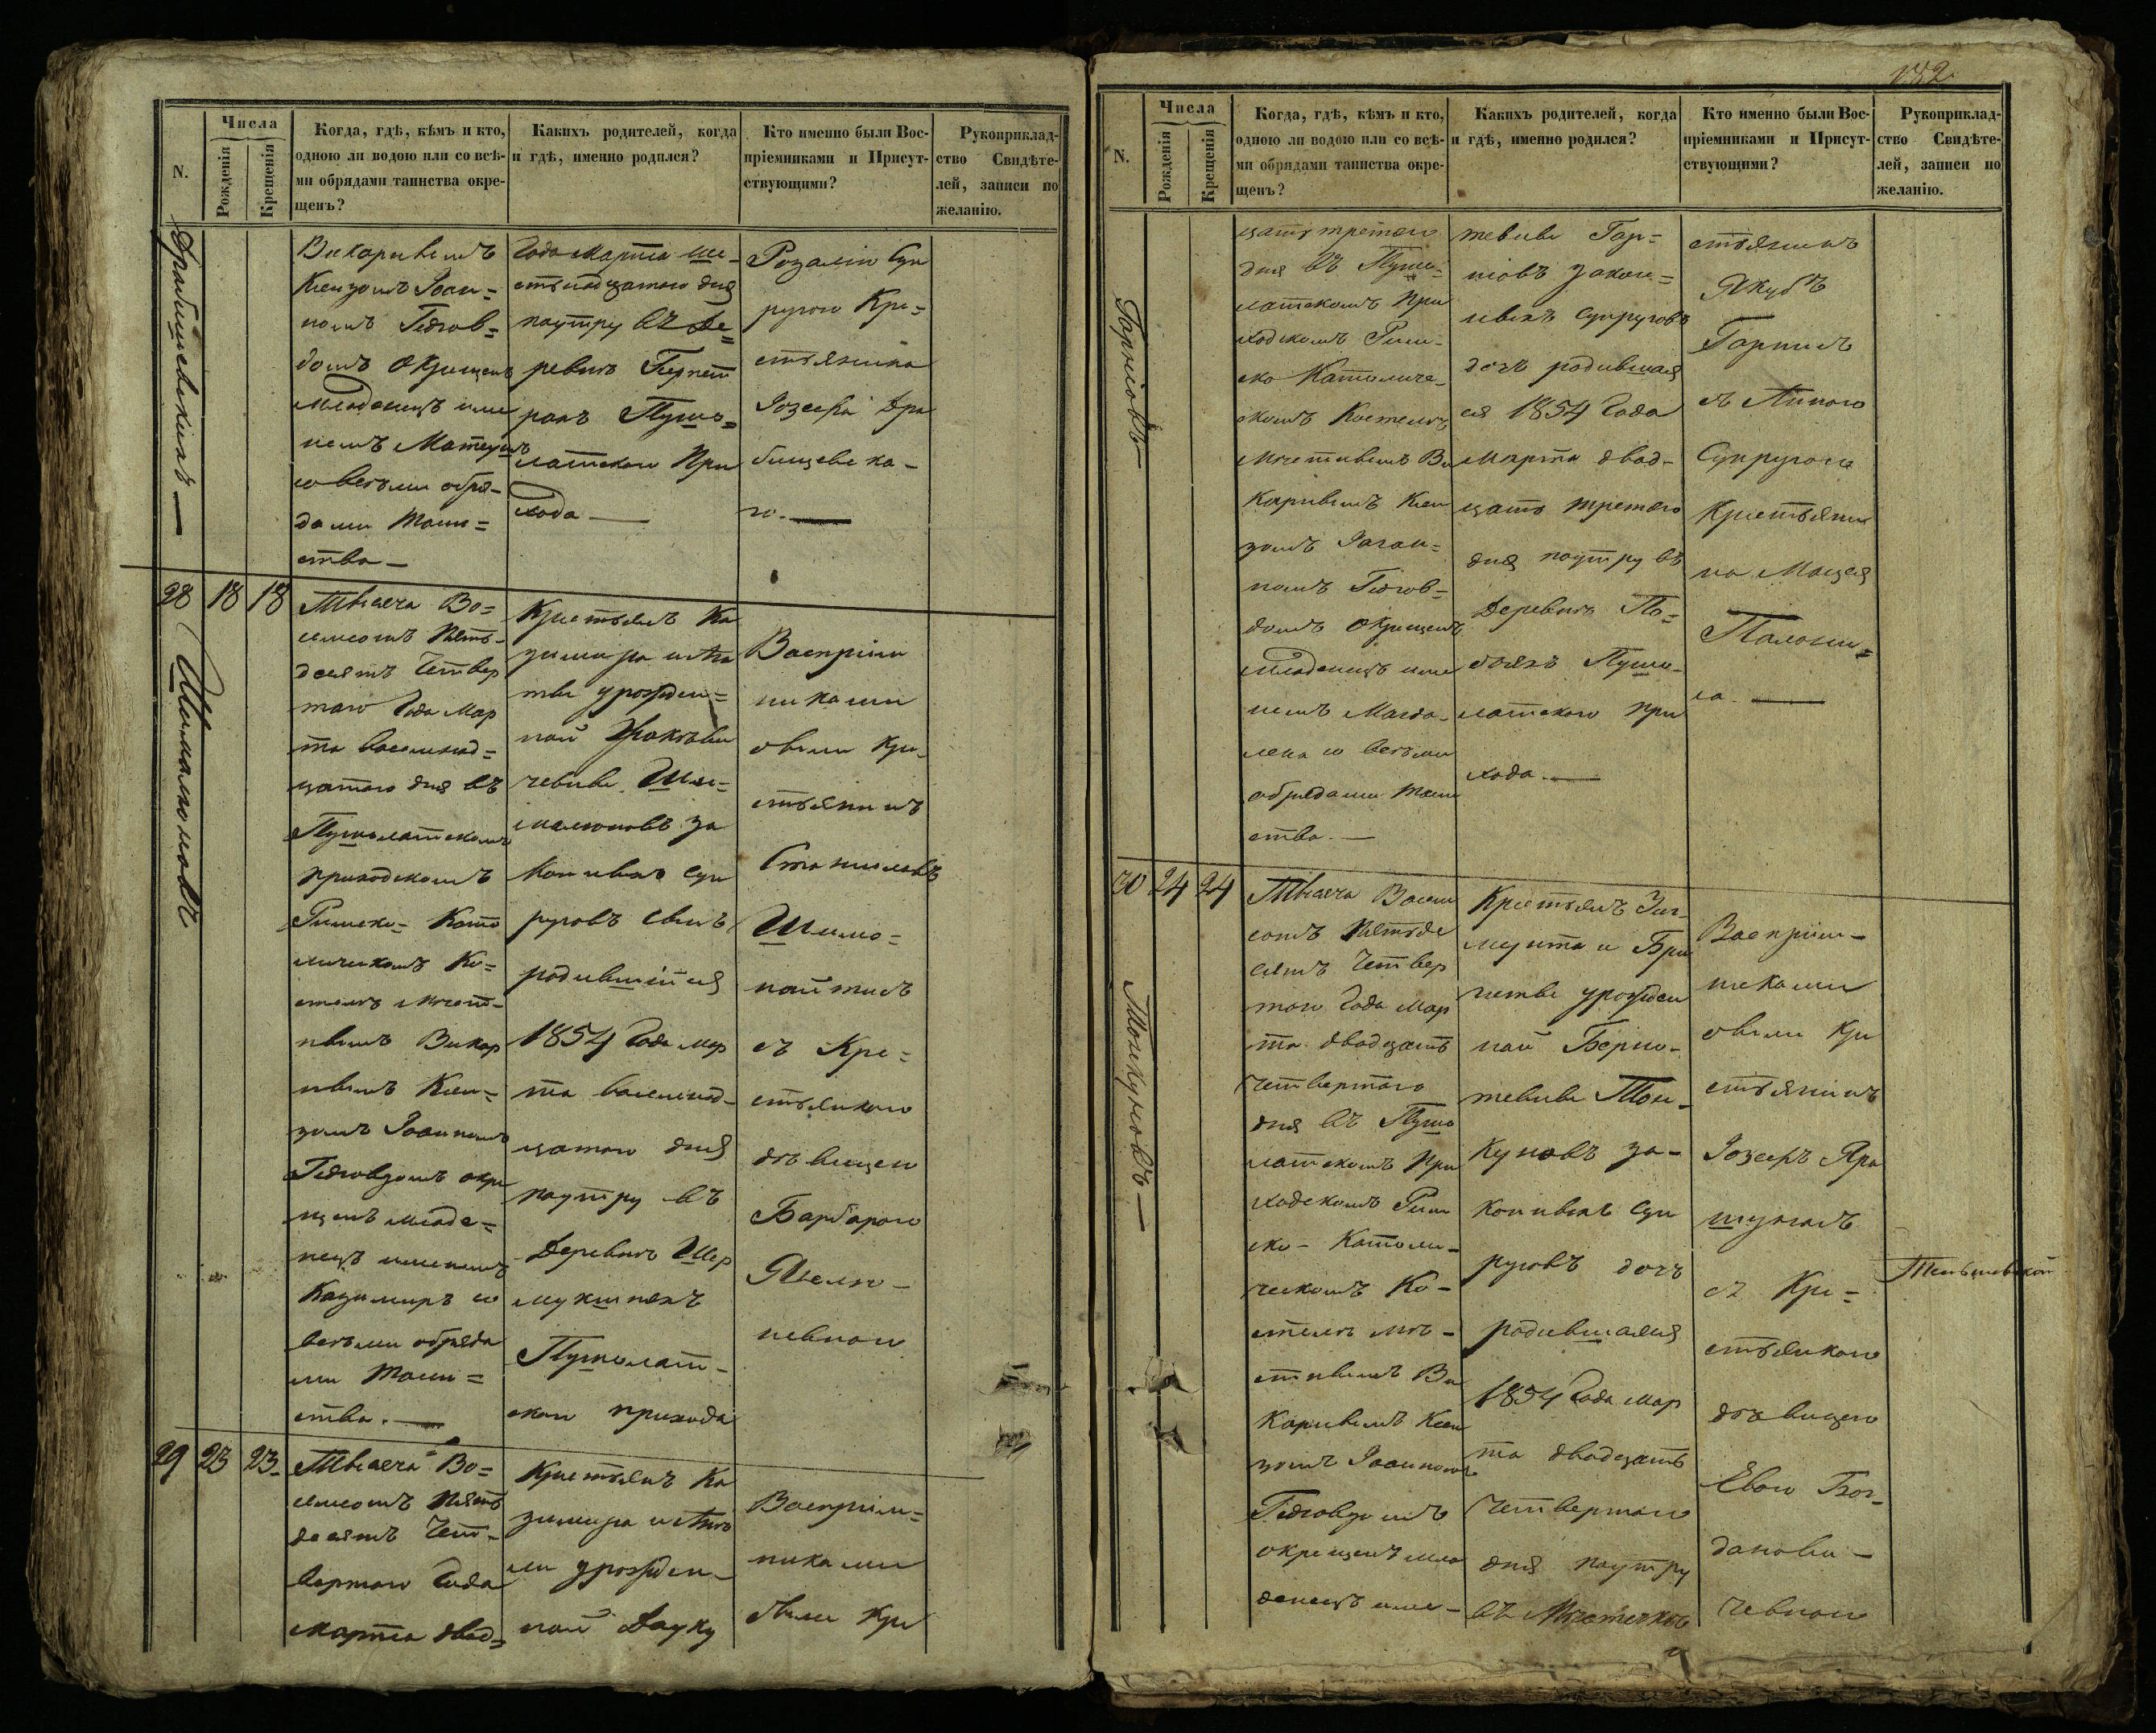 N.
Числа
Рожденія
Крещенія
Когда, гдѣ, кѣмъ и кто,
одною ли водою или со всѣ-
ми обрядами таинства окре-
щенъ?
Какихъ родителей, когда
и гдѣ, именно родился?
Кто именно были Вос-
пріемниками и Присут-
ствующими?
Рукоприклад-
ство Свидѣте-
лей, записи по
желанію.
Викарнымъ
Ксендзомъ Іоан=
номъ
домъ Окрещенъ
Младенецъ име
немъ Матеушъ
со всѣми обря-
дами Таин=
ства —
Года Марта ше-
стнадцатого дня
поутру въ Де=
ревнѣ
ранъ Пушо=
латского При
хода —
Розалія Суп
ругою Кре=
стьянина
Іозефа Дра
бишевска-
го. —
28
18
18
Шимкюновъ
Тысяча Во=
семсотъ Пять-
десятъ Четвер
таго Года Мар
та восемнад=
цатого дня въ
Пушолатскомъ
приходскомъ
Римско-Като
лическомъ Ко=
стелѣ Мѣст-
нымъ Викар
нымъ Ксен=
зомъ Іоанномъ
окре
щенъ младе=
нецъ именемъ
Казимиръ со
всѣми обряда
ми Таин=
ства. —
Крестьянъ Ка
зимира и
урожден=
ной
чевны
за
конныхъ Суп
руговъ сынъ
родившійся
1854 Года Мар
та восемнад-
цатого дня
поутру въ
Деревнѣ Шер
мукшняхъ
Пушолат-
ского прихода
Воспріем
никами
были Кре
стьянинъ
Станиславъ
съ Кре=
стьянкою
дѣвицею
Барбарою
невною
29
23
23
Тысяча Во=
семсотъ Пять
десятъ Чет-
вертого Года
Марта двад=
Крестьянъ Ка
зимира и Анны
урожден-
ной Дауку
Воспріем=
никами
были Кре
152
N.
Числа
Рожденія
Крещенія
Когда, гдѣ, кѣмъ и кто,
одною ли водою или со всѣ-
ми обрядами таинства окре-
щенъ?
Какихъ родителей, когда
и гдѣ, именно родился?
Кто именно были Вос-
пріемниками и Присут-
ствующими?
Рукоприклад-
ство Свидѣте-
лей, записи по
желанію.
Гарніовъ
цать третяго
дня въ Пушо-
латскомъ При
ходскомъ Рим-
ско Католиче-
скомъ Костелѣ
Мѣстнымъ Ви
карнымъ Ксен
зомъ Іоган=
номъ
домъ Окрещенъ
Младенецъ име
немъ Магда-
лена со всѣми
обрядами Таин
ства. —
тевны Гар=
ніовъ закон=
ныхъ Супруговъ
дочь родившая
ся 1854 Года
Марта двад-
цать третяго
дня поутру въ
Деревнѣ По=
Пушо-
латского При
хода. —
стьянинъ
Якубъ
Гарнисъ
съ Анною
Супругою
Крестьяни
на Мацея
30
24
24
Тонкуновъ —
Тысяча Восем
сотъ Пятьде
сятъ Четвер
того Года Мар
та двадцать
Четвертого
дня въ Пушо
латскомъ При
ходскомъ Рим
ско-Католи-
ческомъ Ко-
стелѣ Мѣ-
стнымъ Ви
карнымъ Ксен
зомъ Іоанномъ
окрещенъ мла
денецъ име-
Крестьянъ Зиг-
мунта и Бри
гитты урожден
ной Берно-
тевны Тон-
куновъ за-
конныхъ Суп
руговъ дочь
родившаяся
1854 Года Мар
та двадцать
Четвертого
дня поутру
въ Мѣстечкѣ
Воспріем-
никами
были Кре
стьянинъ
Іозефъ Яра
шунасъ
съ Кре=
стьянкою
дѣвицею
Евою Бог-
данови-
чевною